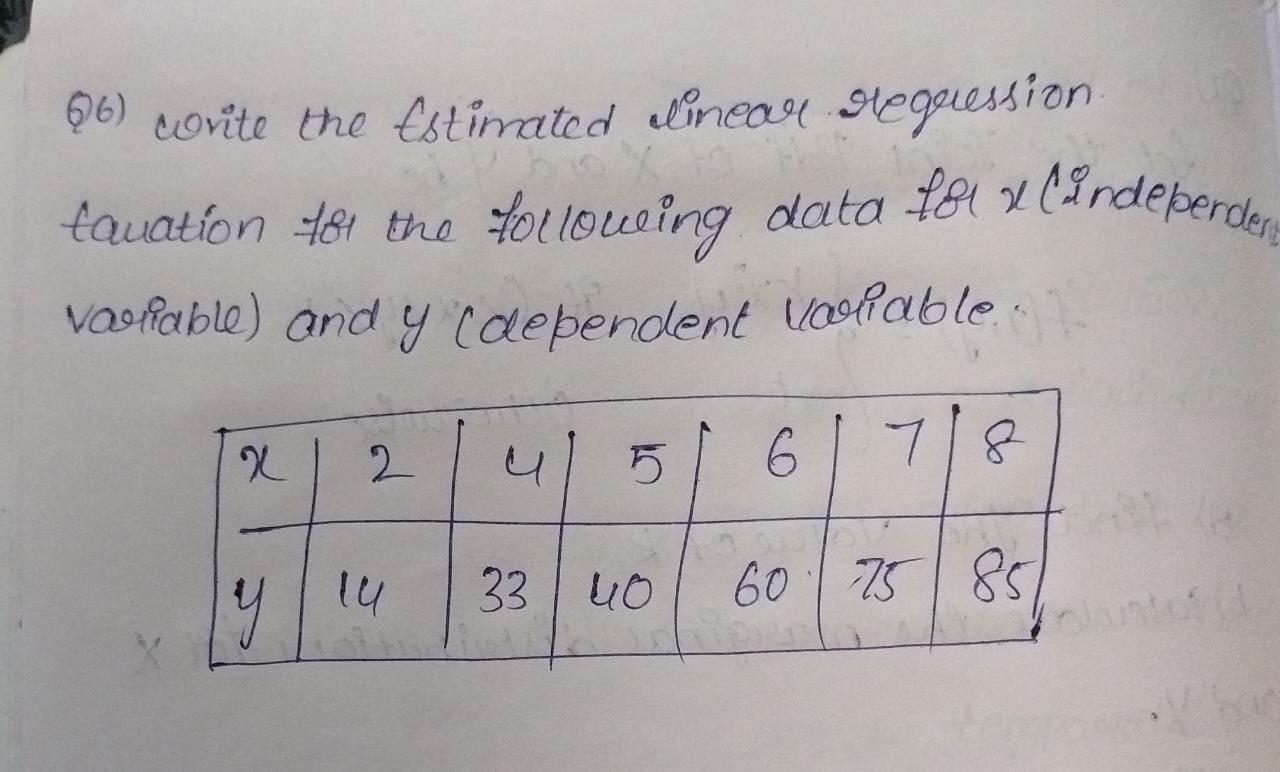 Q6) write the Estimated linear regression
Equation for the following data for x (independent
variable) and y (dependent variable.
x 2 4 5 6 7 8
y 14 33 40 60 75 85